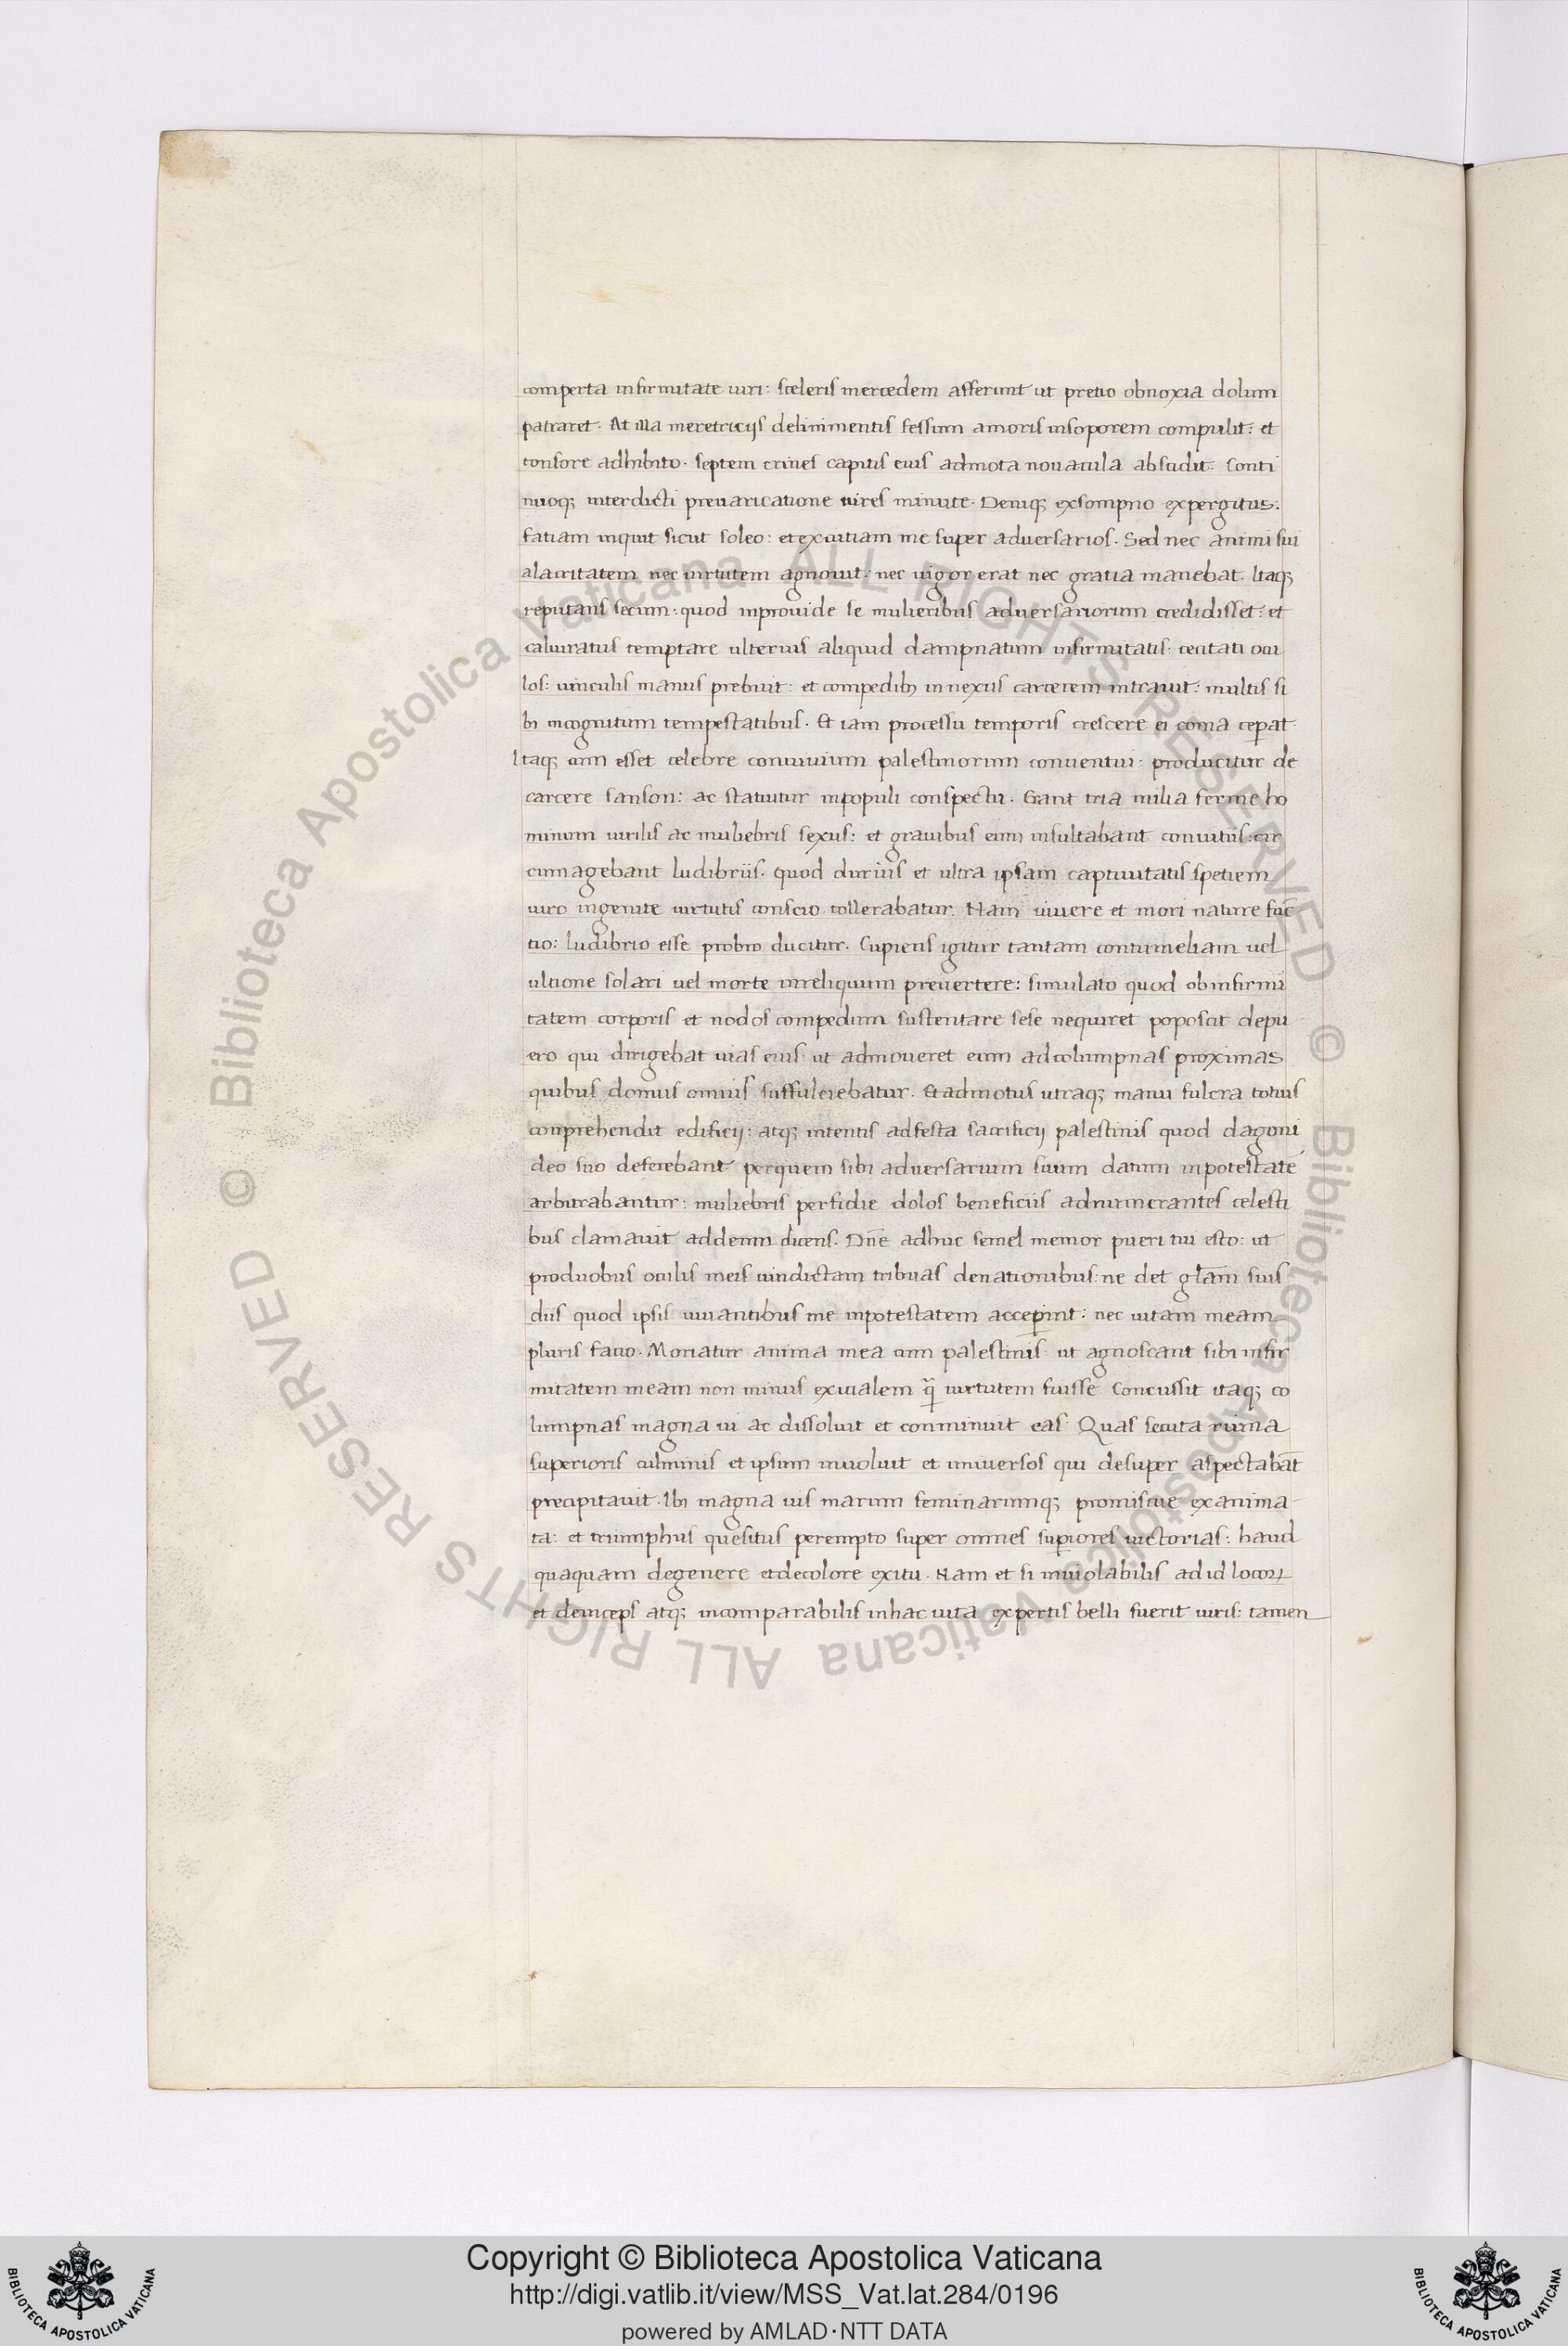 comperta infirmitate uiri: sceleris mercedem afferunt ut pretio obnoxia dolum
patraret. At illa meretricijs delinimentis fessum amoris insoporem compulit: et
tonsore adhibito. septem crines capitis eius admota nouacula abscidit. Conti
nuoq; interdicti preuaricatione uires minute. Deniq; exsompno expergitus:
fatiam inquit sicut soleo: et excutiam me super aduersarios. Sed nec animi sui
alacritatem nec uirtutem agnouit: nec uigor erat nec gratia manebat. Itaq;
reputans secum: quod inprouide se mulieribus aduersariorum credidisset: et
caluiratus temptare ulterius aliquid dampnatum infirmitatis. cecitati ocu
los: uinculis manus prebuit: et compedib; innexus carcerem intrauit: multis si
bi incognitum tempestatibus. Et iam processu temporis crescere ei coma ceperat.
Itaq; cum esset celebre conuiuium palestinorum conuentui: producitur de
carcere sanson: ac statuitur inpopuli conspectu. Erant tria milia ferme ho
minum uirilis ac muliebris sexus: et grauibus eum insultabant conuitiis: cir
cumagebant ludibriis. quod durius et ultra ipsam captiuitatis spetiem
uiro ingenite uirtutis conscio tollerabatur. Nam uiuere et mori nature fūc
tio: ludibrio esse probro ducitur. Cupiens igitur tantam contumeliam uel
ultione solari uel morte inreliquum preuertere: simulato quod obinfirmi
tatem corporis et nodos compedum sustentare sese nequiret poposcit depu
ero qui dirigebat uias eius ut admoueret eum adcolumpnas proximas
quibus domus omnis suffulciebatur. Et admotus utraq; manu fulcra totius
conprehendit edificij: atq; intentis adfesta sacrificij palestinis quod dagoni
deo suo deferebant perquem sibi aduersarium suum datum inpotestatē
arbitrabantur: muliebris perfidie dolos beneficiis adnumerantes celesti
bus clamauit addeum dicens. Dn̄e adhuc semel memor pueri tui esto: ut
produobus oculis meis uindictam tribuas denationibus: ne det gl̄am suis
diis quod ipsis iuuantibus me inpotestatem acceperint: nec uitam meam
pluris facio. Moriatur anima mea cum palestinis ut agnoscant sibi infir
mitatem meam non minus exicialem q̄ uirtutem fuisse Concussit itaq; co
lumpnas magna ui ac dissoluit et conminuit eas Quas secuta ruina
superioris culminis et ipsum inuoluit et uniuersos qui desuper aspectabāt
precipitauit. Ibi magna uis marum feminarumq; promiscue exanima
ta: et triumphus quesitus perempto super omnes superiores uictorias: haud
quaquam degenere et decolore exitu. Nam et si inuiolabilis ad id locoꝝ
et deinceps atq; incomparabilis inhac uita expertis belli fuerit uiris: tamen
Copyright © Biblioteca Apostolica Vaticana
http://digi.vatlib.it/view/MSS_Vat.lat.284/0196
powered by AMLAD·NTT DATA
BIBLIOTECA APOSTOLICA VATICANA
BIBLIOTECA APOSTOLICA VATICANA
© Biblioteca Apostolica Vaticana ALL RIGHTS RESERVED
© Biblioteca Apostolica Vaticana ALL RIGHTS RESERVED